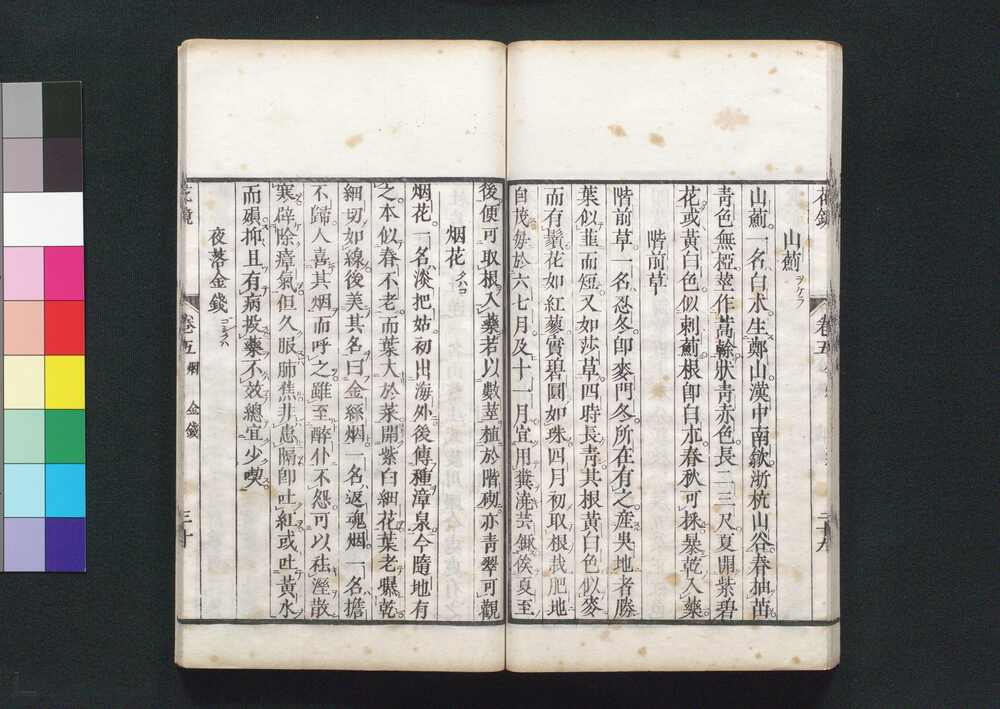 山薊 ヲケラ
山薊一名白朮生鄭山漢中南歙浙杭山谷春抽苗
靑色無椏莖作蒿𠏉狀靑赤色長二三尺夏開紫碧
花或黃白色似刺薊根卽白朮春秋可採暴乾入藥
階前草
階前草一名忍冬卽麥門冬所在有之產吳地者勝
葉似韮而短又如莎草四時長靑其根黃白色似麥
而有鬚花如紅蓼實碧圓如珠四月初取根栽肥地
自茂每於六七月及十一月宜用糞澆芸鋤俟夏至
後便可取根入藥若以數莖植於階砌亦靑翠可觀
烟花 タハコ
烟花一名淡把姑初出海外後傳種漳泉今隨地有
之本似春不老而葉大於菜開紫白細花葉老曝乾
細切如線後美其名曰金絲烟一名返魂烟一名擔
不歸人喜其烟而呼之雖至醉仆不怨可以祛溼散
寒辟除瘴氣但久服肺焦非患隔卽吐紅或吐黃水
而殞抑且有病投藥不效總宜少喫
夜落金錢
花鏡 卷五 烟 金錢 三十